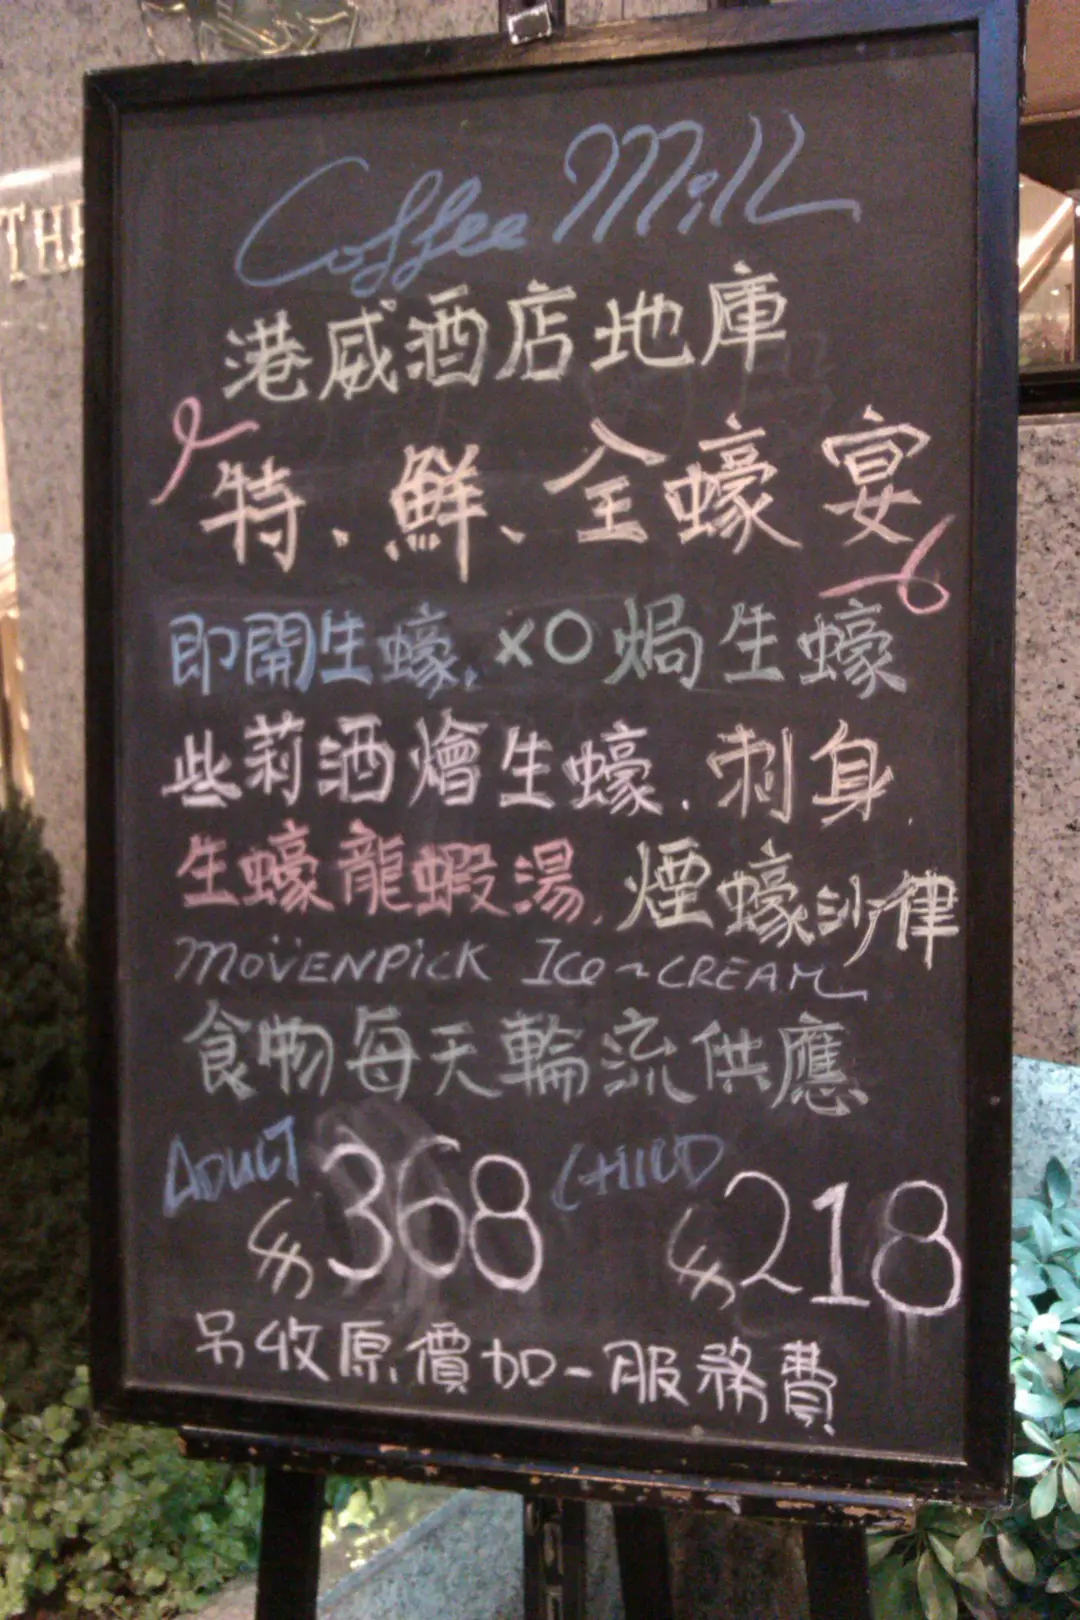 THE
Coffee Mill
港威酒店地庫
特、鮮、全蠔宴
即開生蠔, XO焗生蠔
些莉酒燴生蠔, 刺身,
生蠔龍蝦湯, 煙蠔沙律
MÖVENPICK ICE~CREAM
食物每天輪流供應
ADULT $368 CHILD $218
另收原價加一服務費